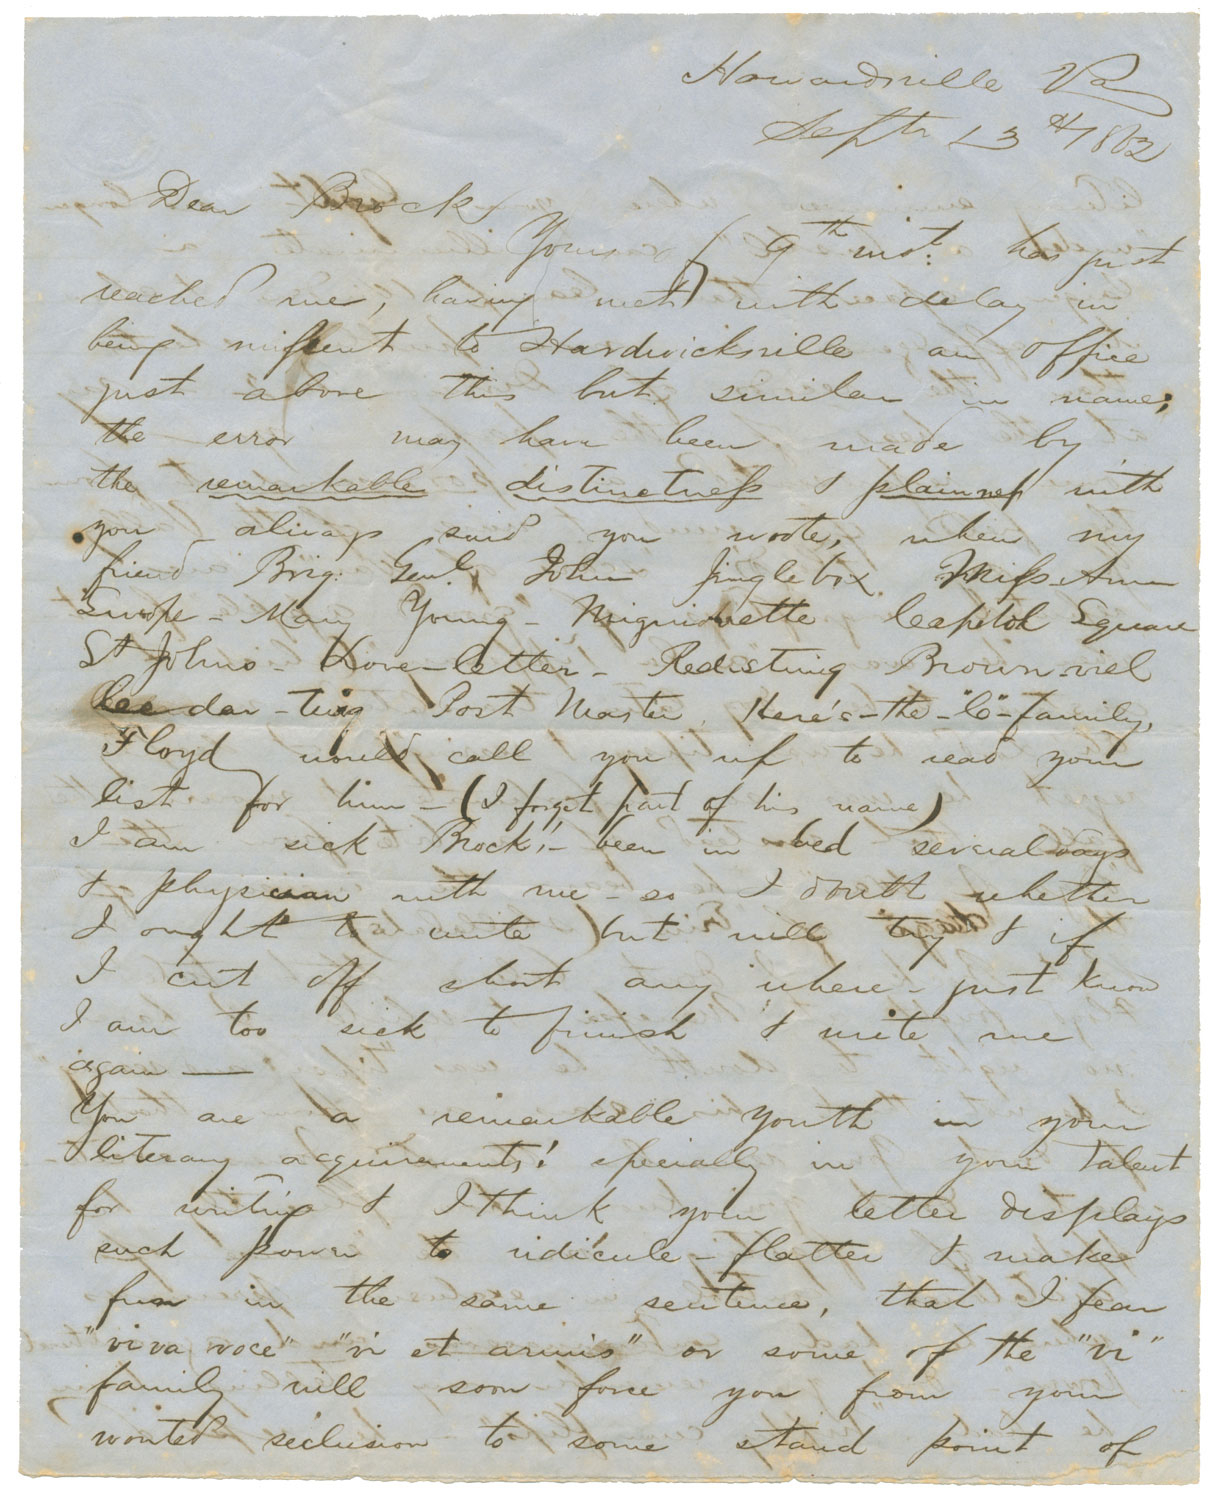 Howardsville Va
Septr 13th 1862
Dear Brock
Yours of 9th inst: has just
reached me, having met with delay in
being missent to Hardwicksville an office
just above this but similar in name;
the error may have been made by
the remarkable distinctness & plainness with
you always said you wrote, when my
friend Brig: Genl. John Jinglebox Miss-Ann
Swope - Mary Young - Mignionette Capitol Square
St Johns - Love-letter - Redisting Brown-viel
dar-ting Post Master. Here's-the-"C"-family,
Floyd would call you up to read your
list for him - (I forget part of his name)
I am sick Brock! - been in bed several days
& physician with me - so I doubt whether
I ought to write but will try & if
I cut off short any where - just know
I am too sick to finish & write me
again —
You are a remarkable youth in your
literary acquirements! specially in your talent
for writing & I think your letter displays
such power to ridicule - flatter & make
fun in the same sentence, that I fear
"viva voce" "vi et armis" or some of the "vi"
family will soon force you from your
wonted seclusion to some stand point of